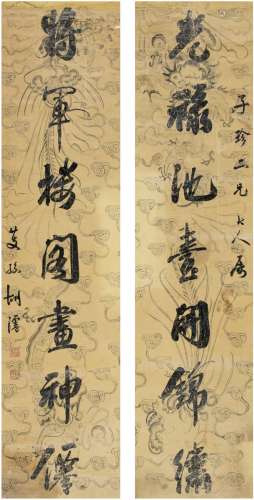 光祿池臺開錦繡
子珍二兄大人屬
將軍樓閣畫神僊
荄孫胡澍